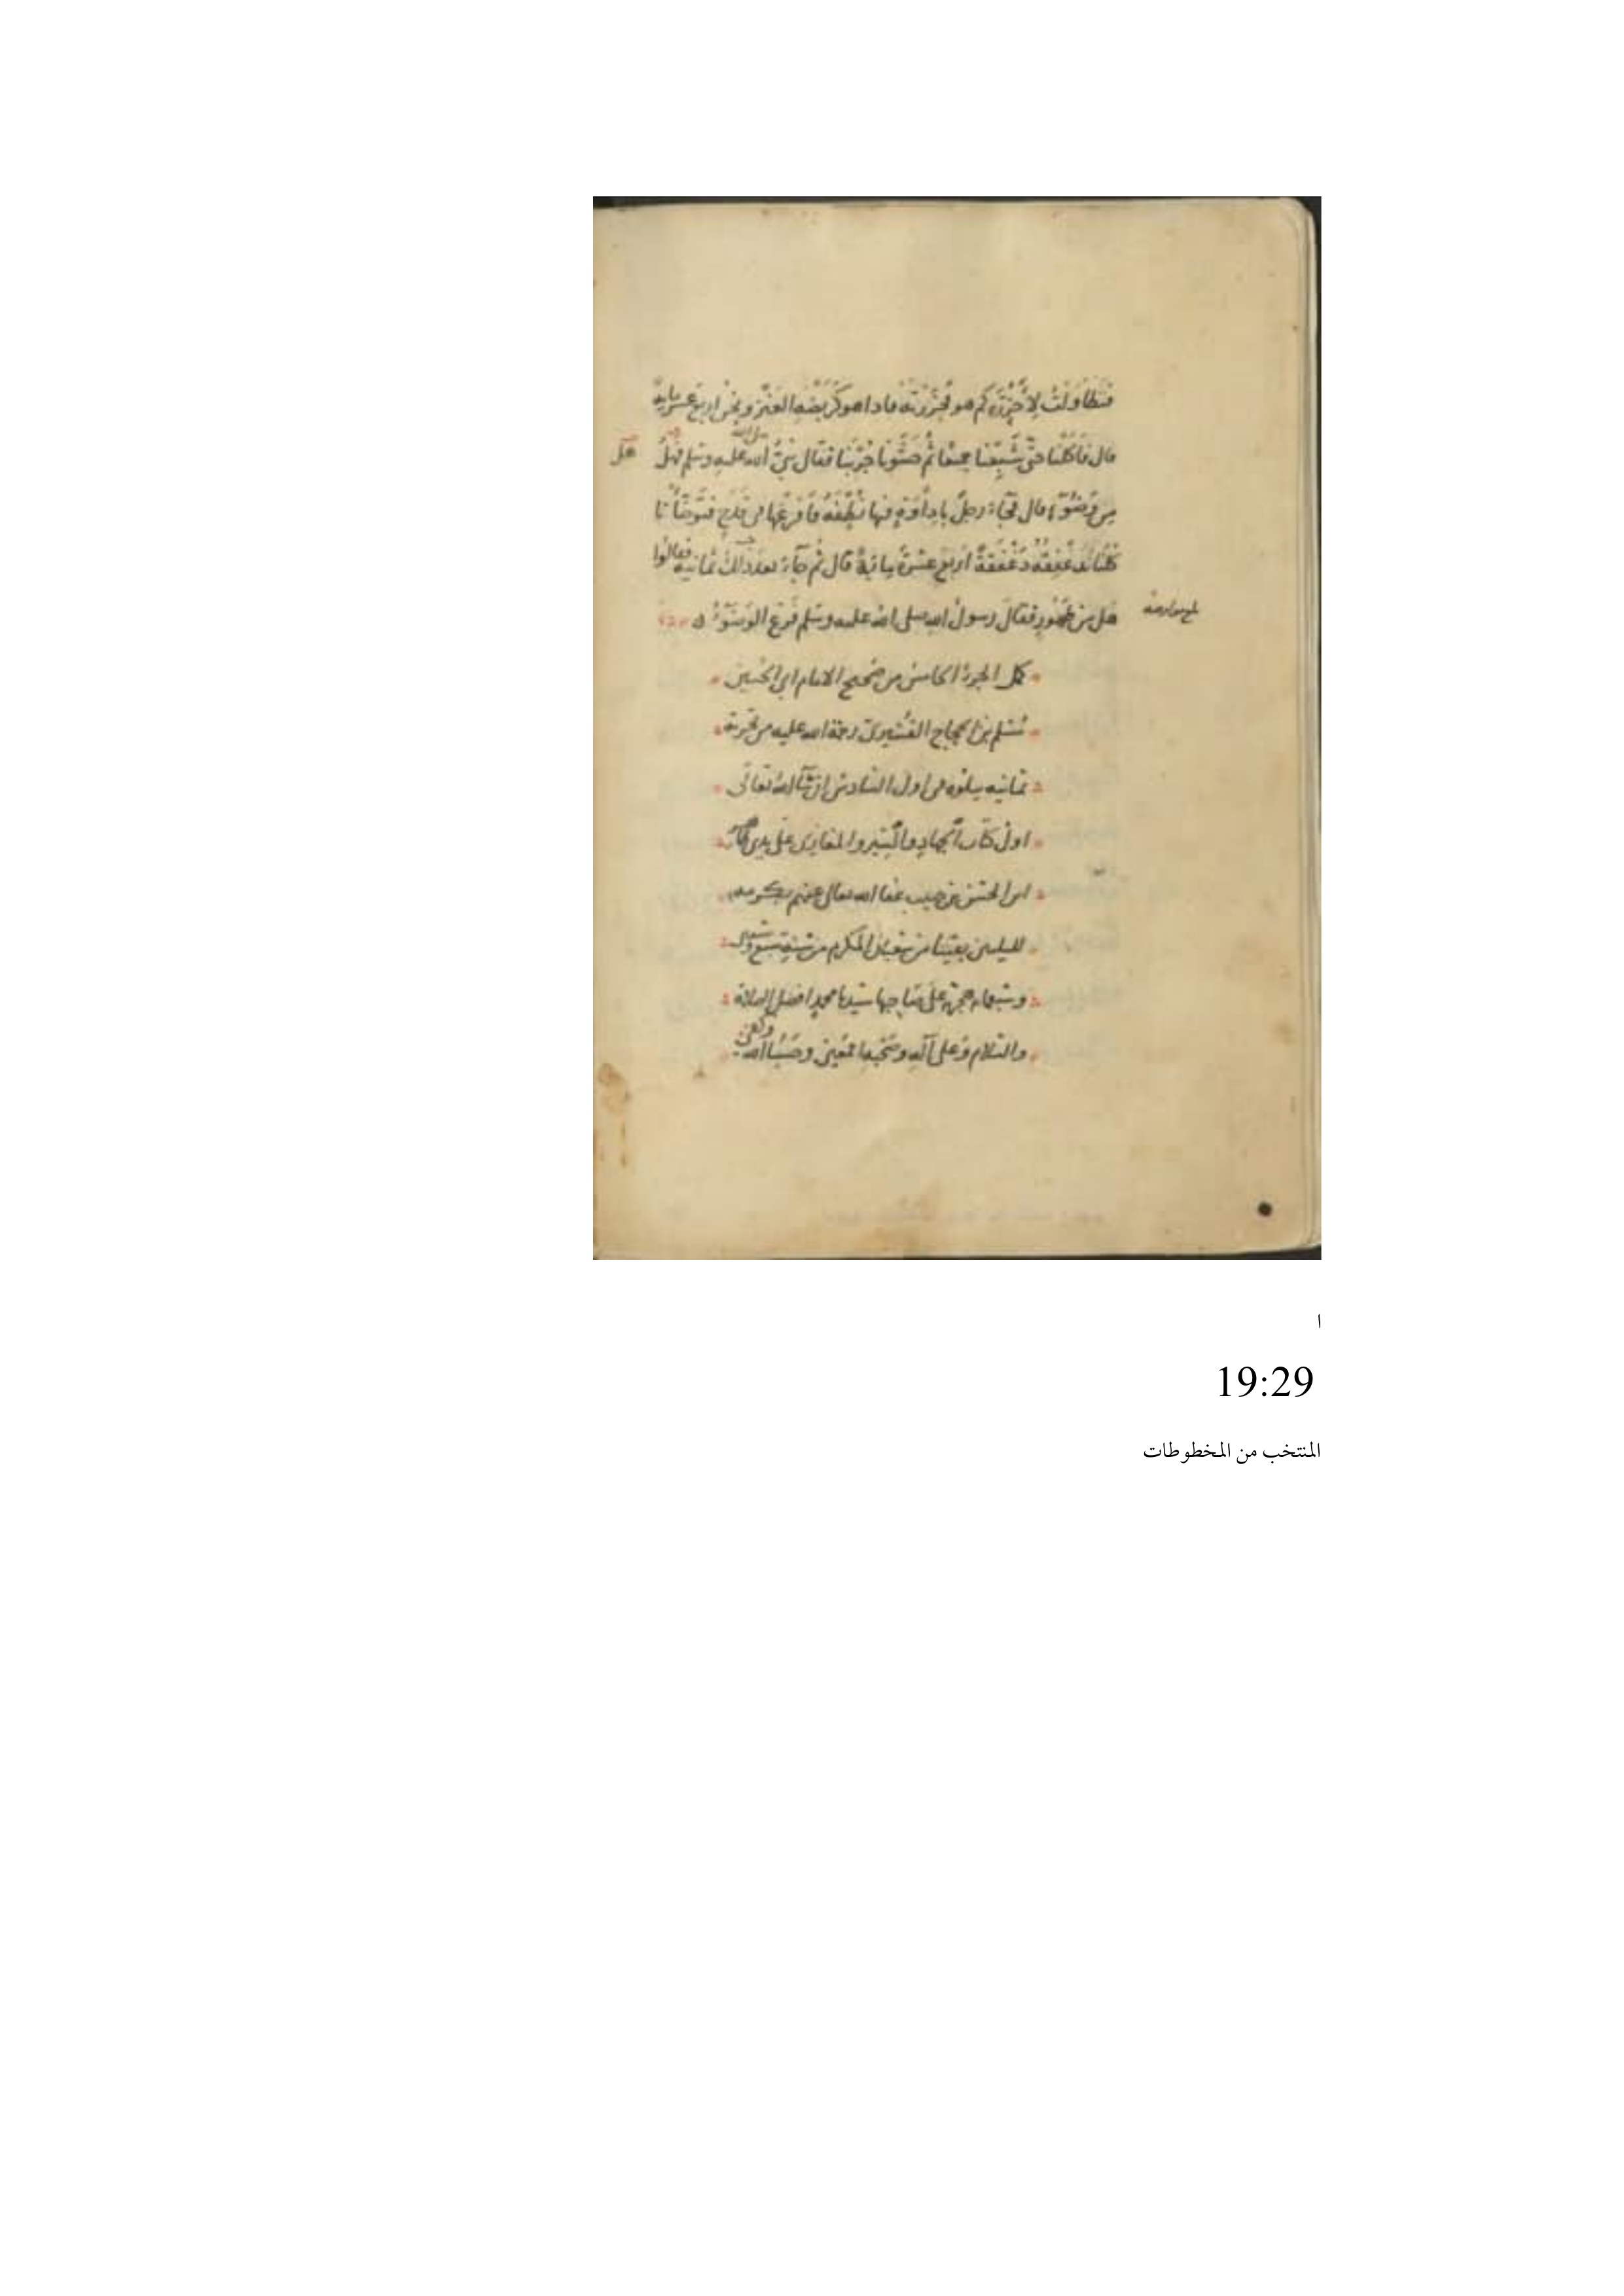 فتطاولت لأحزره كم هو فحزرته فاذا هو كربضه العنز ونحن اربع عشره مايه
قال فاكلنا حتى شبعنا جميعا ثم حشونا جربنا فقال نبي الله صلى الله عليه وسلم فهل
هل
من وضوء قال فجاء رجل باداوة فيها نطفة فافرغها في قدح فتوضأنا
كلنا ندغفقه دغفقة اربع عشرة ماية قال ثم جاء بعد ذلك ثمانيه فقالوا
هل من طهور فقال رسول الله صلى الله عليه وسلم فرغ الوضوء
كمل الجزء الخامس من صحيح الامام ابي الحسين
مسلم بن الحجاج القشيري رحمة الله عليه من تجزية
ثمانيه يتلوه في اول السادس ان شاء الله تعالى
اول كتاب الجهاد والسير والمغازي على يدي
ابن الحسن بن حبيب عفا الله تعالى عنهم بكرمه
لليلتين بقيتا من شعبان المكرم من سنة تسع
وسبعمايه هجرية على صاحبها سيدنا محمد افضل الصلاة
والسلام وعلى آله وصحبه اجمعين وحسبنا الله وكفى
ا
19:29
المنتخب من المخطوطات